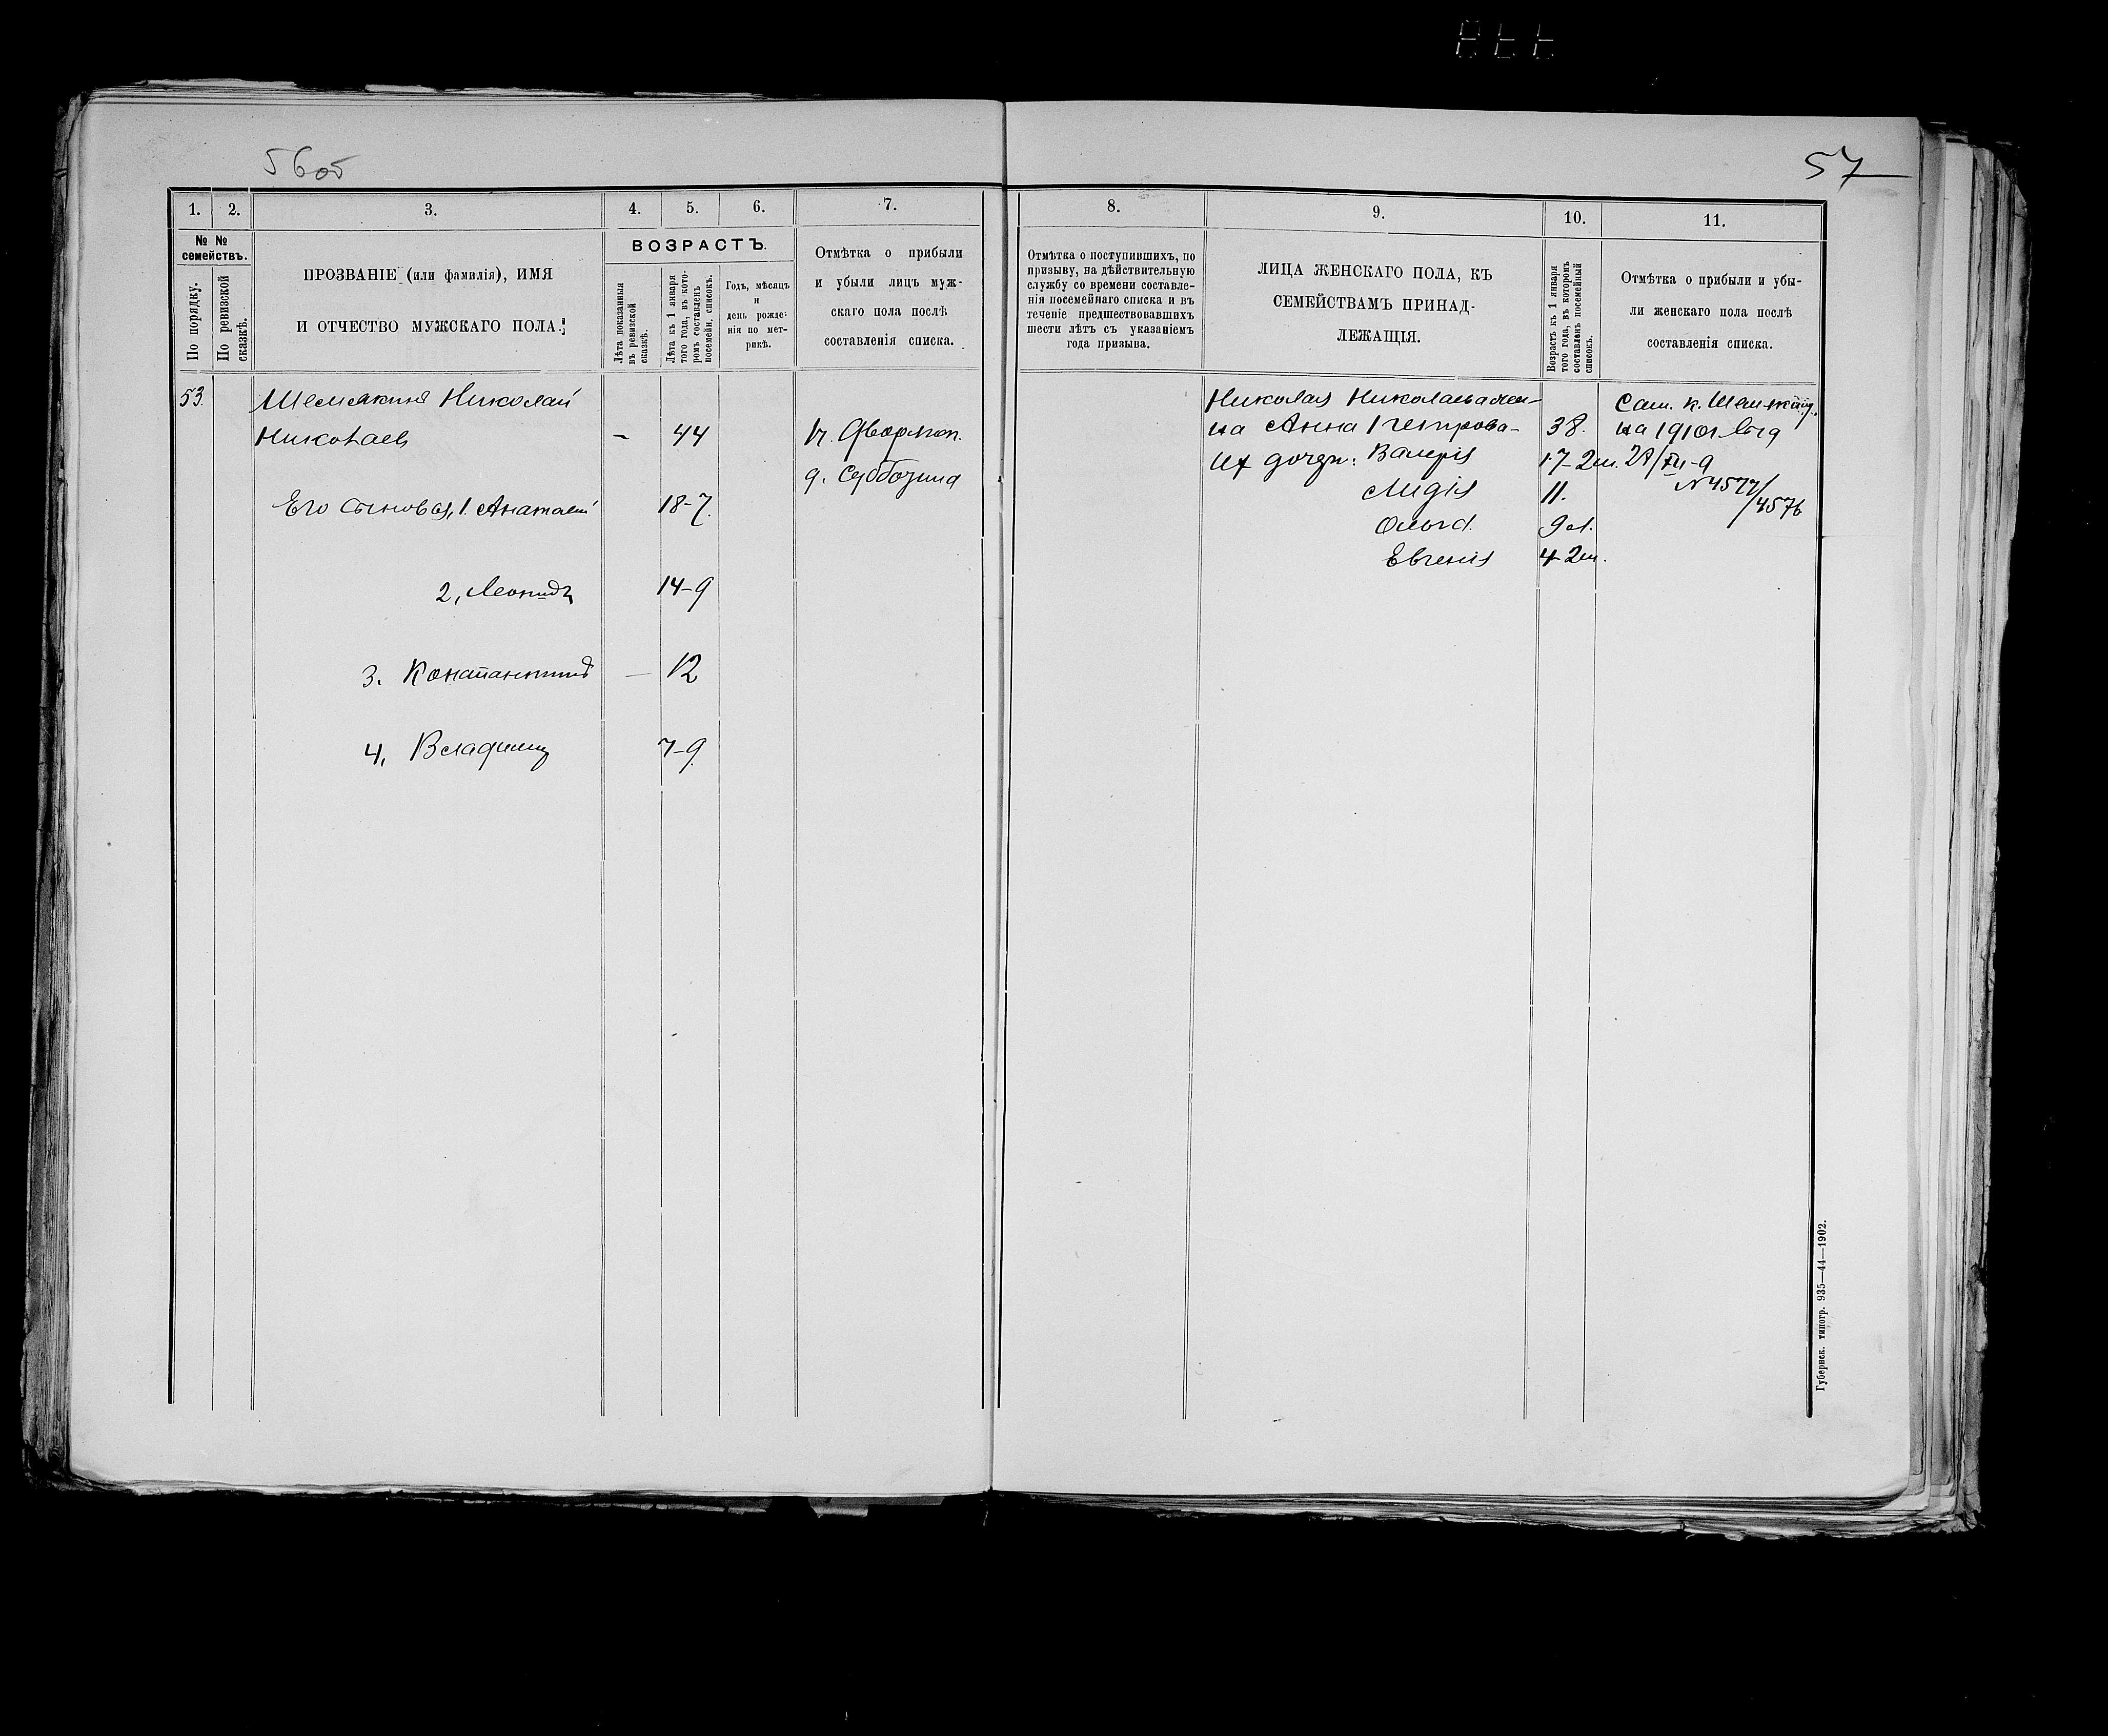 56об
57
1. 2. 3. 4. 5. 6. 7.
№ №
семействъ.
По порядку.
По ревизской
сказкѣ.
ПРОЗВАНІЕ (или фамилія), ИМЯ
И ОТЧЕСТВО МУЖСКАГО ПОЛА.
ВОЗРАСТЪ.
Лѣта показанныя
въ ревизской
сказкѣ.
Лѣта къ 1 января
того года, въ кото-
ромъ составленъ
посемейн. списокъ.
Годъ, мѣсяцъ
и
день рожде-
нія по мет-
рикѣ.
Отмѣтка о прибыли
и убыли лицъ муж-
скаго пола послѣ
составленія списка.
53. Шемякинъ Николай
Николаевъ - 44
Его сыновья, 1. Анатолій 18-7
2, Леонидъ 14-9
3. Константинъ — 12
4, Владиміръ 7-9
д. Субботина
8. 9. 10. 11.
Отмѣтка о поступившихъ, по
призыву, на дѣйствительную
службу со времени составле-
нія посемейнаго списка и въ
теченіе предшествовавшихъ
шести лѣтъ съ указаніемъ
года призыва.
ЛИЦА ЖЕНСКАГО ПОЛА, КЪ
СЕМЕЙСТВАМЪ ПРИНАД-
ЛЕЖАЩІЯ.
Возрастъ къ 1 января
того года, въ которомъ
составленъ посемейный
списокъ.
Отмѣтка о прибыли и убы-
ли женскаго пола послѣ
составленія списка.
Николая Николаева жен-
на Анна Петрова- 38.
Их дочери: Валерія 17-2м.
Лидія 11.
Ольга. 9 л.
Евгенія 4-2м.
на 1910
№ 4577/
4576
Губернск. типогр. 935—44—1902.